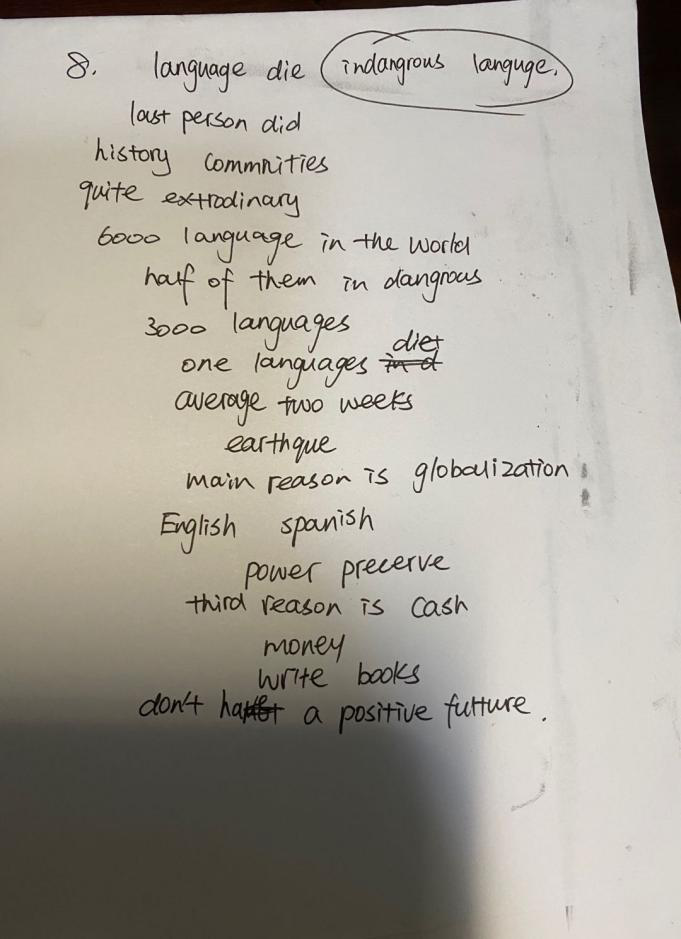 8. language die indangrous languge.
last person did
history commnities
quite extrodinary
6000 language in the world
half of them in dangrous
3000 languages
one languages died
average two weeks
earthque
main reason is globalization
English spanish
power precerve
third reason is cash
money
write books
don't have a positive futture.